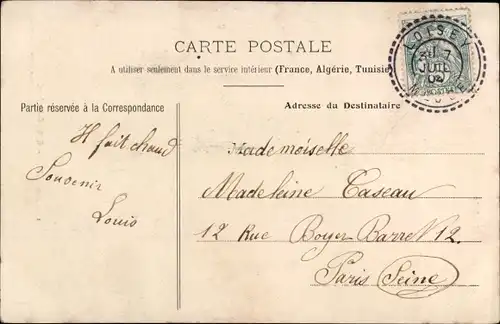 CARTE POSTALE
A utiliser seulement dans le service intérieur (France, Algérie, Tunisie)
LOISEY
7
JUIL
Partie réservée à la Correspondance
Adresse du Destinataire
Il fait chaud
Souvenir
Louis
Mademoiselle
Madeleine Caseau
12 Rue Boyer Barret N° 12.
Paris Seine